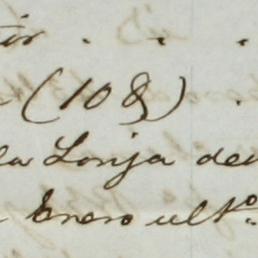 . . .
(108) .
la Lonja de
Enero ult.º